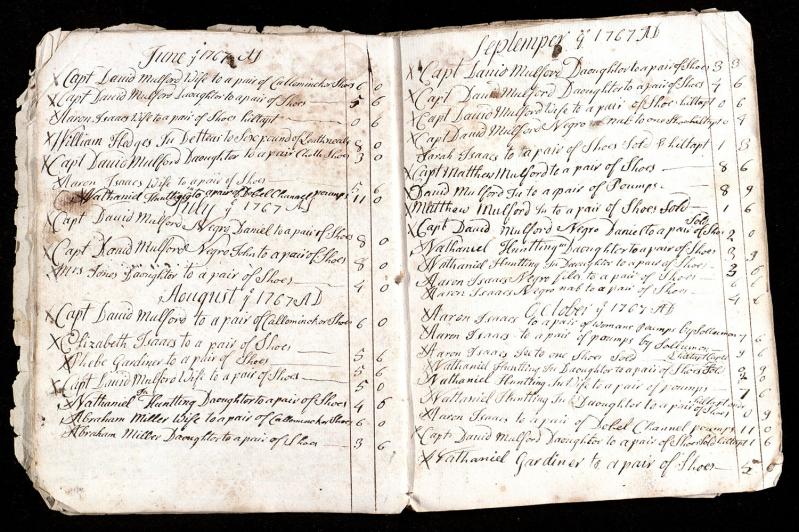 June ye 1767 AD
X Capt David Mulford Wife to a pair of Calleminckor Shoes 6 0
X Capt David Mulford Daoughter to a pair of Shoes 5 6
X Aaron Isaacs Wife to a pair of Shoes heltapt 0 6
X William Hedges Jn Detter to Sixe pound of Leath 8 0
X Capt David Mulford Daoughter to a pair Shoes 3 0
X Aaron Isaacs Wife to a pair of Shoes 5 6
X Nathaniel Huntting to a pair of Dobel Channel poumps 11 0
July ye 1767 AD
X Capt David Mulford Negro Daniel to a pair of Shoes 8 0
X Capt David Mulford Negro John to a pair of Shoes 8 0
X Mrs Jones Daoughter to a pair of Shoes 4 0
Aougust ye 1767 AD
X Capt David Mulford to a pair of Calleminckor Shoes 6 0
X Elizabeth Isaacs to a pair of Shoes
X Phebe Gardiner to a pair of Shoes 5 6
X Capt David Mulford Wife to a pair of Shoes 5 6
X Nathaniel Huntting Jn Daoughter to a pair of Shoes 4 6
X Abraham Miller Wife to a pair of Calleminckor Shoes 6 0
X Abraham Miller Daoughter to a pair of Shoes 3 6
September ye 1767 AD
X Capt David Mulford Daoughter to a pair of Shoes 3 3
X Capt David Mulford Daoughter to a pair of Shoes 4 6
X Capt David Mulford Wife to a pair of Shoes hiltapt 0 6
X Capt David Mulford Negro nab to one Shoe hiltapt 0 4
Sarah Isaacs to a pair of Shoes Sold & hiltapt 1 3
X Capt Matthew Mulford to a pair of Shoes 8 6
X David Mulford Jn to a pair of Poumps 8 9
X Matthew Mulford Jn to a pair of Shoes Sold 1 6
X Capt David Mulford Negro Daniel to a pair of Shoes Sold 2 0
X Nathaniel Huntting Daoughter to a pair of Shoes 3 9
X Nathaniel Huntting Jn Daoughter to a pair of Shoes 3
X Aaron Isaacs Negro to a pair of Shoes 6 6
X Aaron Isaacs Negro nab to a pair of Shoes 4 6
October ye 1767 AD
X Aaron Isaacs to a pair of womans Poumps by Solleumon 7 6
X Aaron Isaacs to a pair of poumps by Solleumon 9 6
X Aaron Isaacs Jn to one Shoes Sold
X Nathaniel Huntting Jn Daoughter to a pair of Shoes Sold
X Nathaniel Huntting Jn Wife to a pair of poumps
X Nathaniel Huntting Jn Daoughter to a pair of Shoes 0 9
X Aaron Isaacs to a pair of Dobel Channel poumps 11 0
X Capt David Mulford Daoughter to a pair of Shoes Sold hiltapt 1 6
X Nathaniel Gardiner to a pair of Shoes